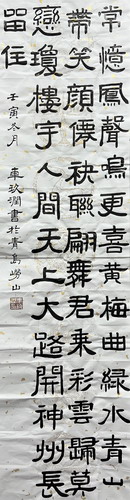 常憶鳳聲更喜黃梅曲綠水青山
帶笑顏僊袂聯翩舞君乘彩雲歸莫
戀瓊樓宇人間天上大路開神州長
留住
壬寅冬月 車玖書於青島嶗山